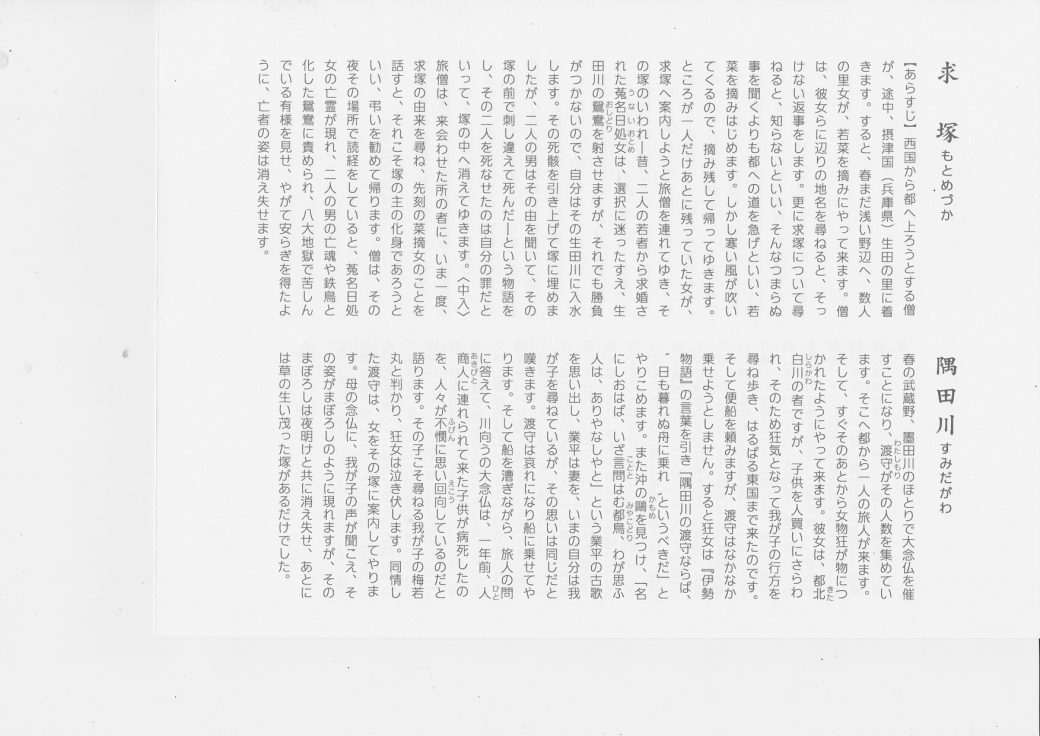 求塚 もとめづか
【あらすじ】西国から都へ上ろうとする僧
が、途中、摂津国（兵庫県）生田の里に着
きます。すると、春まだ浅い野辺へ、数人
の里女が、若菜を摘みにやって来ます。僧
は、彼女らに辺りの地名を尋ねると、そっ
けない返事をします。更に求塚について尋
ねると、知らないといい、そんなつまらぬ
事を聞くよりも都への道を急げといい、若
菜を摘みはじめます。しかし寒い風が吹い
てくるので、摘み残して帰ってゆきます。
ところが一人だけあとに残っていた女が、
求塚へ案内しようと旅僧を連れてゆき、そ
の塚のいわれ―昔、二人の若者から求婚さ
れた菟名日処女は、選択に迷ったすえ、生
田川の鴛鴦を射させますが、それでも勝負
がつかないので、自分はその生田川に入水
します。その死骸を引き上げて塚に埋めま
したが、二人の男はその由を聞いて、その
塚の前で刺し違えて死んだ―という物語を
し、その二人を死なせたのは自分の罪だと
いって、塚の中へ消えてゆきます。〈中入〉
旅僧は、来会わせた所の者に、いま一度、
求塚の由来を尋ね、先刻の菜摘女のことを
話すと、それこそ塚の主の化身であろうと
いい、弔いを勧めて帰ります。僧は、その
夜その場所で読経をしていると、菟名日処
女の亡霊が現れ、二人の男の亡魂や鉄鳥と
化した鴛鴦に責められ、八大地獄で苦しん
でいる有様を見せ、やがて安らぎを得たよ
うに、亡者の姿は消え失せます。
隅田川 すみだがわ
春の武蔵野、墨田川のほとりで大念仏を催
すことになり、渡守がその人数を集めてい
ます。そこへ都から一人の旅人が来ます。
そして、すぐそのあとから女物狂が物につ
かれたようにやって来ます。彼女は、都北
白川の者ですが、子供を人買いにさらわ
れ、そのため狂気となって我が子の行方を
尋ね歩き、はるばる東国まで来たのです。
そして便船を頼みますが、渡守はなかなか
乗せようとしません。すると狂女は『伊勢
物語』の言葉を引き「隅田川の渡守ならば、
〝日も暮れぬ舟に乗れ〟というべきだ」と
やりこめます。また沖の鷗を見つけ、「名
にしおはば、いざ言問はむ都鳥、わが思ふ
人は、ありやなしやと」という業平の古歌
を思い出し、業平は妻を、いまの自分は我
が子を尋ねているが、その思いは同じだと
嘆きます。渡守は哀れになり船に乗せてや
ります。そして船を漕ぎながら、旅人の問
に答えて、川向うの大念仏は、一年前、人
商人に連れられて来た子供が病死したの
を、人々が不憫に思い回向しているのだと
語ります。その子こそ尋ねる我が子の梅若
丸と判かり、狂女は泣き伏します。同情し
た渡守は、女をその塚に案内してやりま
す。母の念仏に、我が子の声が聞こえ、そ
の姿がまぼろしのように現れますが、その
まぼろしは夜明けと共に消え失せ、あとに
は草の生い茂った塚があるだけでした。